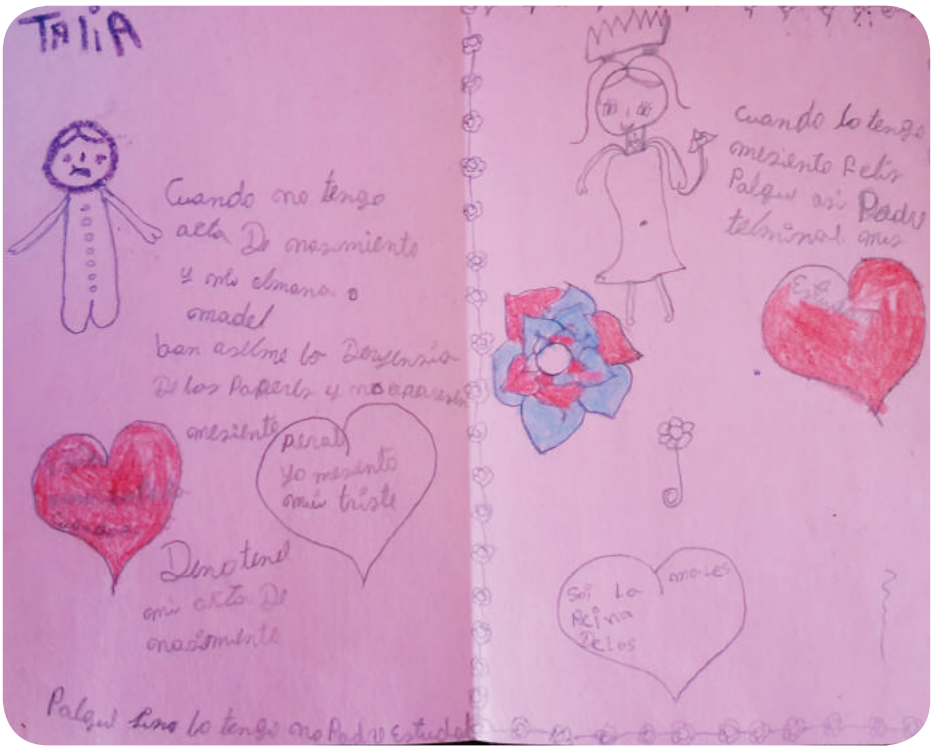 TALIA
Cuando no tengo
acta De nasimiento
y mi elmana o
madel
ban aselme lo Diligensia
De los Papeles y no aparese
mesiente penal
yo mesiento
mui triste
Denotenel
mi acta De
nasimiento
Palqui Sino lo tengo no Padre Estudial
cuando lo tengo
mesiento Felis
Palqui asi Padre
telminal mis
Soi La
Reina
Delos mares